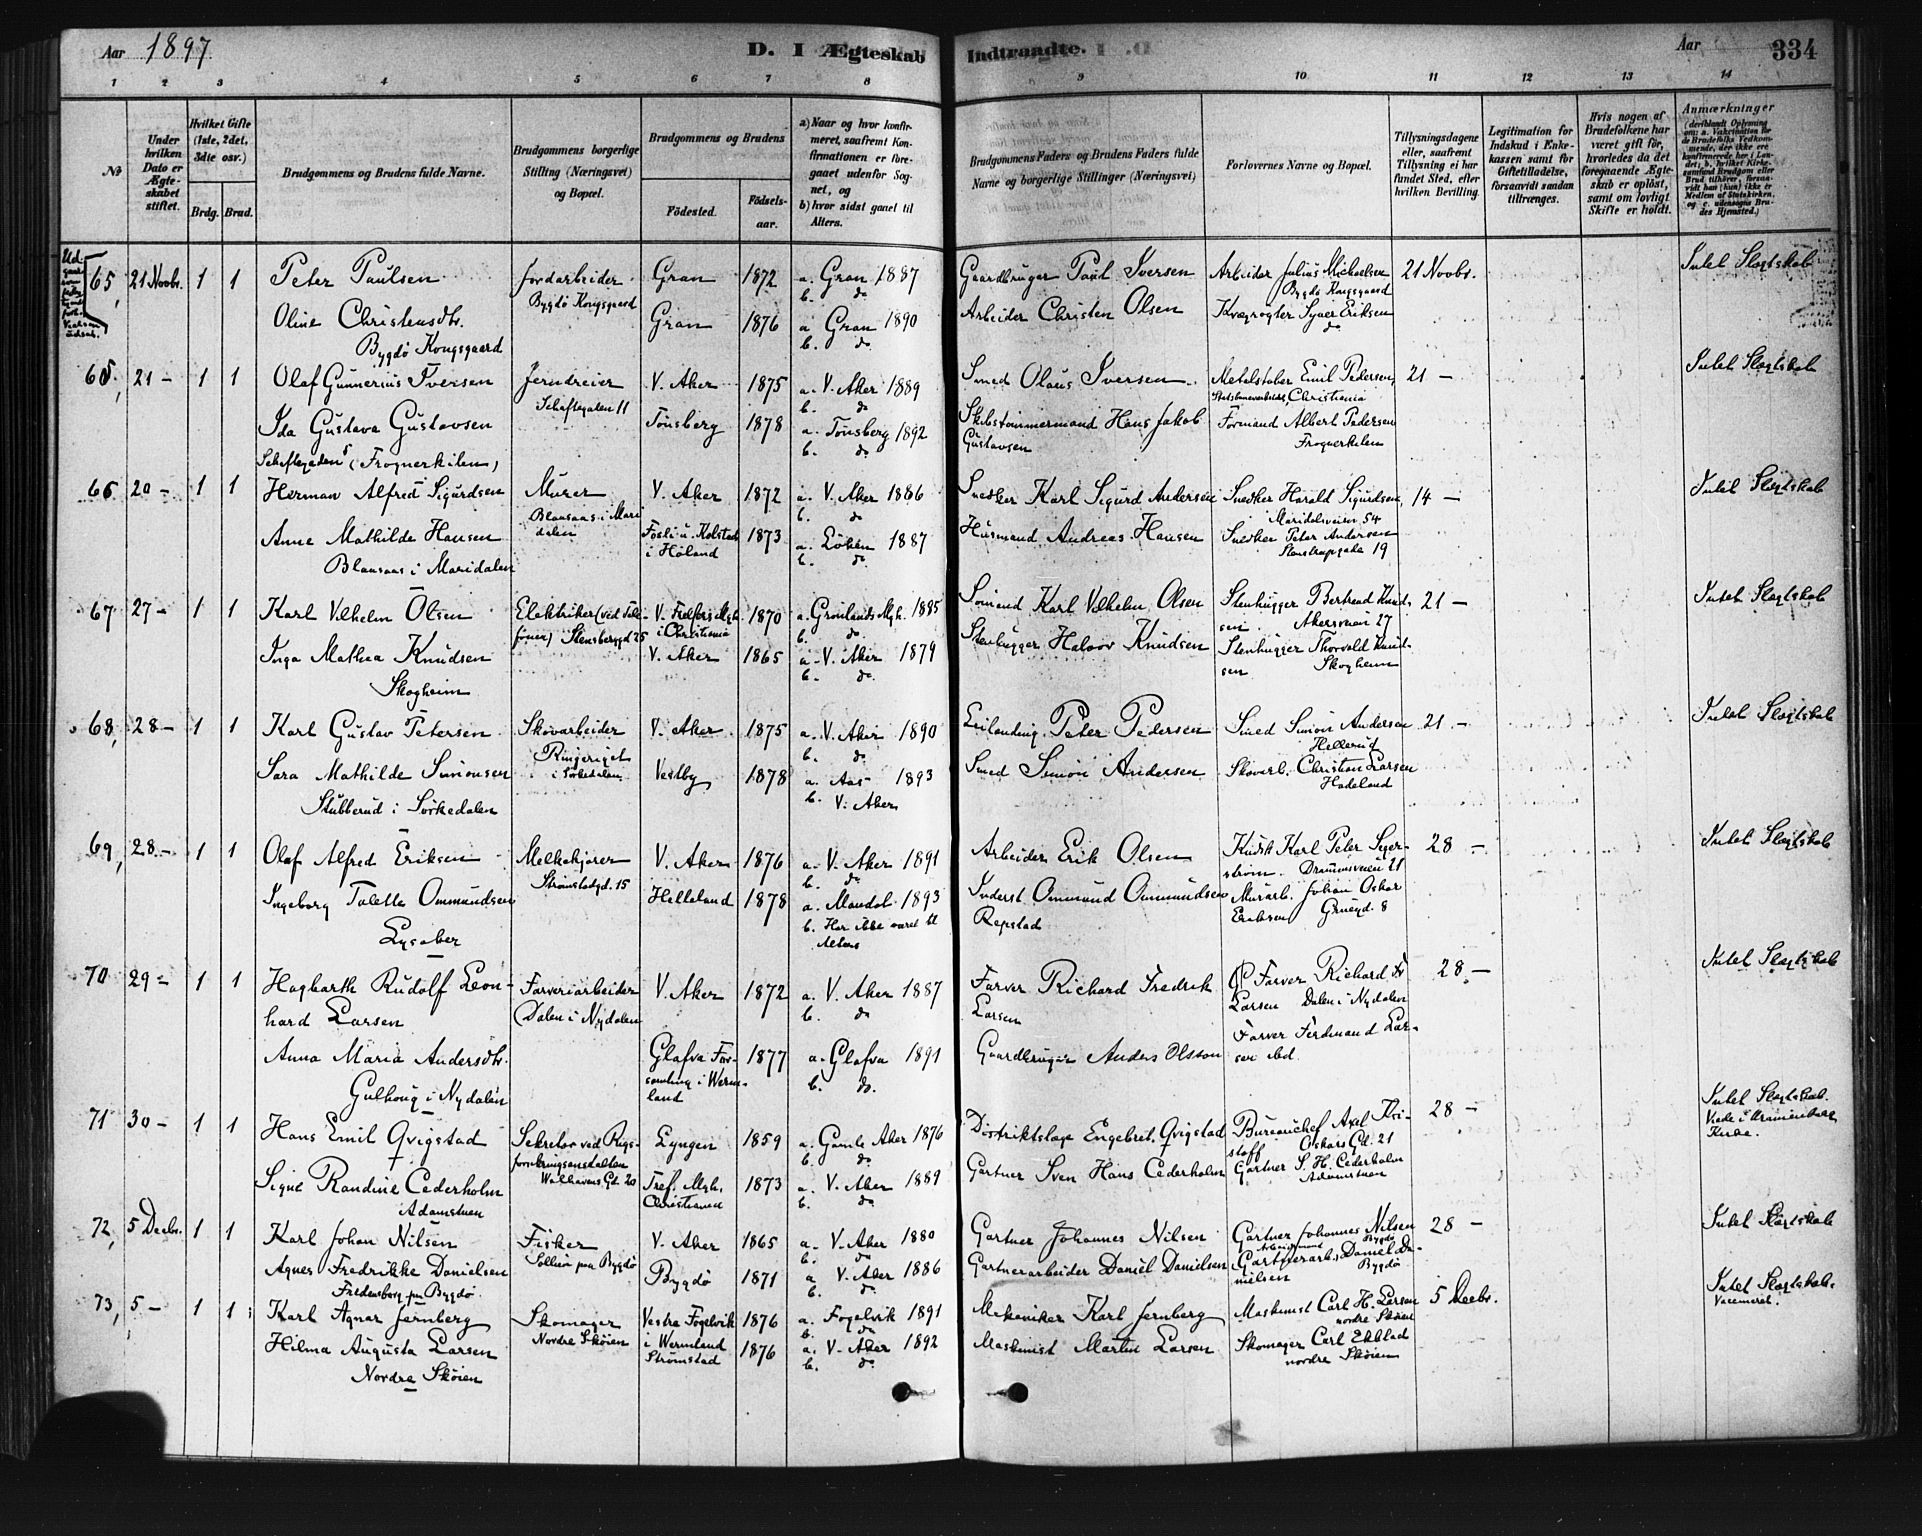 Aar 1897 D. I Ægteskab Indtraadte. Aar 334
1 2 3 4 5 6 7 8 9 10 11 12 13 14
№
Under hvilken Dato er Ægteskabet stiftet.
Hvilket Gifte (1ste, 2det, 3die osv.)
Brdg. Brud.
Brudgommens og Brudens fulde Navne.
Brudgommens borgerlige Stilling (Næringsvei) og Bopæl.
Brudgommens og Brudens
Födested. Födsels-aar.
a) Naar og hvor konfirmeret, saafremt Konfirmationen er foregaaet udenfor Sognet, og
b) hvor sidst gaaet til Alters.
Brudgommens Faders og Brudens Faders fulde Navne og borgerlige Stillinger (Næringsvei)
Forlovernes Navne og Bopæl.
Tillysningsdagene eller, saafremt Tillysning ei har fundet Sted, efter hvilken Bevilling.
Legitimation for Indskud i Enkekassen samt for Giftetilladelse, forsaavidt saadan tiltrænges.
Hvis nogen af Brudefolkene har været gift för, hvorledes da det foregaaende Ægteskab er oplöst, samt om lovligt Skifte er holdt.
Anmærkninger
65, 21 Novbr. 1 1 Peter Paulsen Jordarbeider Gran 1872 a. Gran 1887 Gaardbruger Paul Iversen Arbeider Julius Michaelsen 21 Novbr. Intet Slægtskab
Bygdö Kongsgaard b. do Bygdö Kongsgaard
Oline Christensdtr. Gran 1876 a Gran 1890 Arbeider Christen Olsen Kvægrögter Syver Eriksen
Bygdö Kongsgaard b. do do
65, 21 – 1 1 Olaf Gunnerius Iversen Jerndreier V. Aker 1875 a. V. Aker 1889 Smed Olaus Iversen Metalstöber Emil Pedersen, 21 – Intet Slægtskab
Schaftegaten 11 b. do Christiania
Ida Gustava Gustavsen Tönsberg 1878 a. Tönsberg 1892 Skibstömmermand Hans Jakob Formand Albert Pedersen
Schaftegaden 5 (Frognerkilen) b. do Gustavsen Frognerkilen
66 20 – 1 1 Herman Alfred Sigurdsen Murer V. Aker 1872 a. V. Aker 1886 Snedker Karl Sigurd Andersen Snedker Harald Sigurdsen, 14 – Intet Slægtskab
Blaasaas i Maridalen b. do Maridalsveien 54
Anne Mathilde Hansen i Höland 1873 a. Löken 1887 Husmand Andreas Hansen Snedker Peter Andersen
Blaasaas i Maridalen b. do Stenstrupgate 19
67 27 – 1 1 Karl Vilhelm Olsen Elektriker (ved Telefonen) Stensbergd 25 V. Frelsers Mgh. i Christiania 1870 a. Grönlands Mgh. 1885 Sömand Karl Vilhelm Olsen Stenhugger Bertrand Knudsen Akersveien 27 21 – Intet Slægtskab
b. do
Inga Mathea Knudsen V. Aker 1865 a. V. Aker 1879 Stenhugger Halvor Knudsen Stenhugger Thorvald Knudsen
Skogheim b. do. Skogheim
68, 28 – 1 1 Karl Gustav Petersen Skovarbeider V. Aker 1875 a. V. Aker 1890 Peter Pedersen Smed Simon Andersen 21 – Intet Slægtskab
Ringeriget i Sörkedalen b. do Hellerud
Sara Mathilde Simonsen Vestby 1878 a. Aas 1893 Smed Simon Andersen Skovarb. Christian Larsen
Stubberud i Sörkedalen b. V. Aker Hadeland
69, 28 – 1 1 Olaf Alfred Eriksen Melkekjörer V. Aker 1876 a. V. Aker 1891 Arbeider Erik Olsen Kudsk Karl Peter Segerström. Drammensveien 21 28 – Intet Slægtskab
Strömstadgd. 15 b. do
Ingeborg Talette Ommundsen Helleland 1878 a. Mandal 1893 Inderst Ommund Ommundsen Murarb. Johan Oskar
Lysaker b. Har ikke været til Alters Repstad Eriksen Grüngd. 8
70 29 – 1 1 Hagbarth Rudolf Leonhard Larsen Farveriarbeider V. Aker 1872 a. V. Aker 1887 Farver Richard Fredrik Larsen Farver Richard Fr Larsen Dalen i Nydalen 28 – Intet Slægtskab
(Dalen i Nydalen b. do
Anna Maria Andersdtr. Glafva Forsamling i Wermland 1877 a. Glafva 1891 Gaardbruger Anders Olsson Farver Ferdinand Larsen ibd.
Gulhaug i Nydalen b. do.
71 30 – 1 1 Hans Emil Qvigstad Sekretær ved Rigsforsikringsanstalten Lyngen 1859 a. Gamle Aker 1876 Distriktslæge Engebret Qvigstad Bureauchef Axel Kristoff Oskars Gd. 21 28 – Intet Slægtskab.
Viede i Uranienborg Kirke.
Welhavens Gd. 20 b. do
Signe Randine Cederholm Tref. Mgh. Christiania 1873 a. V. Aker 1889 Gartner Sven Hans Cederholm Gartner S. H. Cederholm
Adamstuen b. do Adamstuen
72, 5 Decbr. 1 1 Karl Johan Nilsen Fisker V. Aker 1865 a. V. Aker 1880 Gartner Johannes Nilsen Gartner Johannes Nilsen Bygdö 28 – Intet Slægtskab
Sollien paa Bygdö b. do
Agnes Fredrikke Danielsen Bygdö 1871 a V. Aker 1886 Gartnerarbeider Daniel Danielsen Gartnerarb. Daniel Danielsen Bygdö
Fredensborg paa Bygdö b. do.
73, 5 – 1 1 Karl Agnar Jernberg Skomager Vestra Fogelvik i Wermland 1876 a. Fogelvik 1891 Mekaniker Karl Jernberg Maskinist Carl H. Larsen 5 Decbr. Intet Slægtskab.
Nordre Sköien b. do nordre Sköien
Hilma Augusta Larsen Strömstad 1876 a. V. Aker 1892 Maskinist Martin Larsen Skomager Carl Ekblad
Nordre Sköien b. do. nordre Sköien